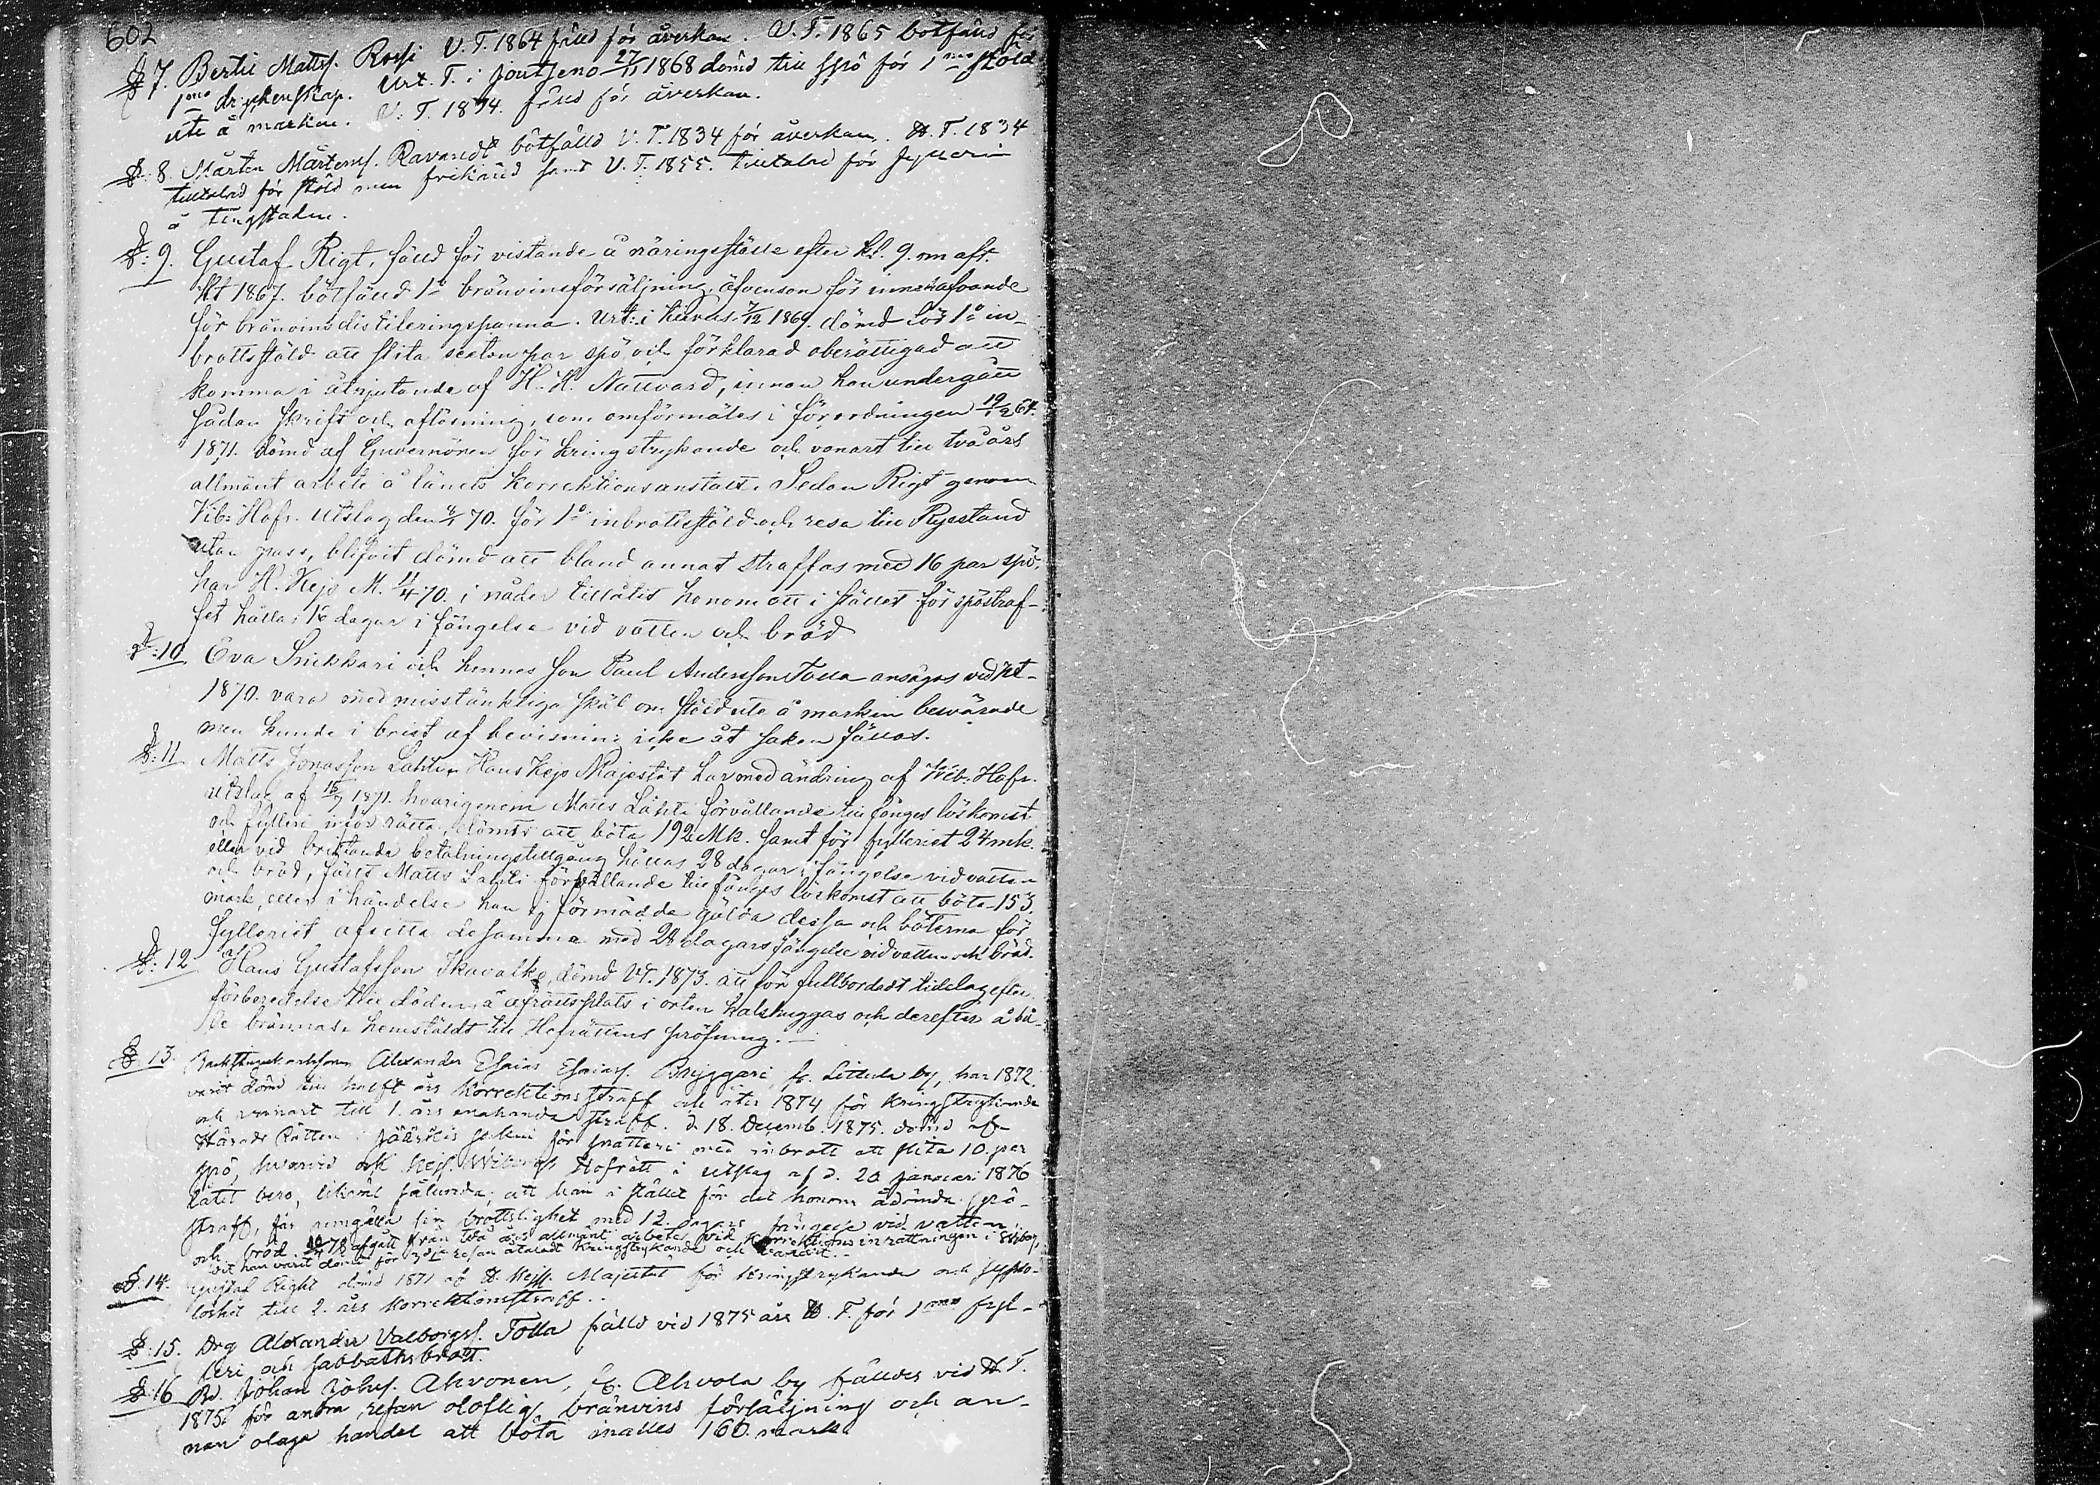 602
§ 7. Bertil Matts. Rossi V. T. 1864 fälld för åverkan. V. T. 1865 botfälld för
1mo dryckenskap. Urt. T. i Joutseno 27/11 1868 dömd till spö för 1mo stöld
ute å marken. V. T. 1874. fälld för åverkan.
§: 8. Mårten Mårtenss. Ravandt botfälld V. T. 1834 för åverkan. H. T. 1834
tilltalad för stöld men frikänd samt V. T. 1855. tilltalad för fylleri
å tingstaden.
§: 9. Gustaf Rigt, fälld för vistande å näringsställe efter kl. 9. om aft.
Ht 1867. bötfälld 1o bränvinsförsäljning, äfvenson för innehafvande
för bränvins distilleringspanna. Urt: i 7/12 1869. dömd för 1o in-
brottsstöld att slita sexton par spö och förklarad oberättigad att
komma i åtnjutande af H. H. Nattvard, innan han undergått
sådan skrift och aflösning, som omförmäles i förordningen 19/12 64.
1871. dömd af Guvernören för kringstrykande och vanart till två års
allmänt arbete å länets korrektionsanstalt. Sedan Rigt genom
Vib: Hofr. Utslag den 70. för 1o inbrottsstöld och resa till Ryssland
utan pass, blifvit dömd att bland annat straffas med 16 par spö,
har H. Kejs M. 11/4 70. i nåder tillåtit honom att i stället för spöstraf-
fet hållas 16 dagar i fängelse vid vatten och bröd
§: 10 Eva Snikkari och hennes son Paul Andersson Tolla ansågos vid Ht
1870. vara med misstänkliga skäl om stöld ute å marken besvärade
men kunde i brist af bevisning icke åt saken fällas.
§: 11 Matts Jonasson Lahti Hans Kejs Majestät har med ändring af Vib. Hofr.
utslag af 15/7 1871. hvarigenom Matts Lahti förvållande till fånges löskomst
och fylleri inför rätta, dömts att böta 192 Mk. samt för fylleriet 24 mk.
eller vid bristande betalningstillgång hållas 28 dagar i fängelse vid vatten
och bröd, fällt Matts Lahti förvållande till fånges löskomst att böta 153.
mark, eller i händelse han ej förmådde gälda dessa och böterna för
fylleriet afsitta desamma med 28 dagars fängelse vid vatten och bröd.
§: 12 Hans Gustafsson Skavalke, dömd VT. 1873. att för fullbordadt tidelag efter
förberedelse till döden, å afrättsplats i orten halshuggas och derefter å bå-
le brännas, hemstäldt till Hofrättens pröfning.
§ 13. Alexander Esaias Esaiass. Bryggari, fr. by, har 1872.
varit dömd till halft års korrektionsstraff och åter 1874 för kringstrykande
och vanart till 1. års enahanda straff. d. 18. Decemb. 1875. dömd af
Härads Rätten i Jääskis socken för snatteri med inbrott att slita 10. par
spö, hvarvid ock Kejs. Wiborgs Hofrätt i utslag af d. 20 januari 1876
låtit bero, likväl sålunda, att han i stället för det honom ådömda spö-
straff, får umgälla sin brottslighet med 12. dagars fängelse vid vatten
och bröd. 78 afgått från två års allmänt arbete vid korrektions inrättningen i Wiborg,
dit han varit dömd för resan åtaladt kringstrykande och vanart.
§: 14. Gustaf Right dömd 1871 af H. Kejs. Majestät för kringstrykande och
löshet till 2. års korrektionsstraff.
§: 15. Drg Alexander Valborgs. Tolla fälld vid 1875 års H. T. för 1mo fyl-
leri och sabbathsbrott.
§ 16 Bd. Johan Johs. Ahvonen, fr. Ahvola by fälldes vid H. T.
1875. för andra resan oloflig bränvins försäljning och an-
nan olaga handel att böta inalles 160. mark